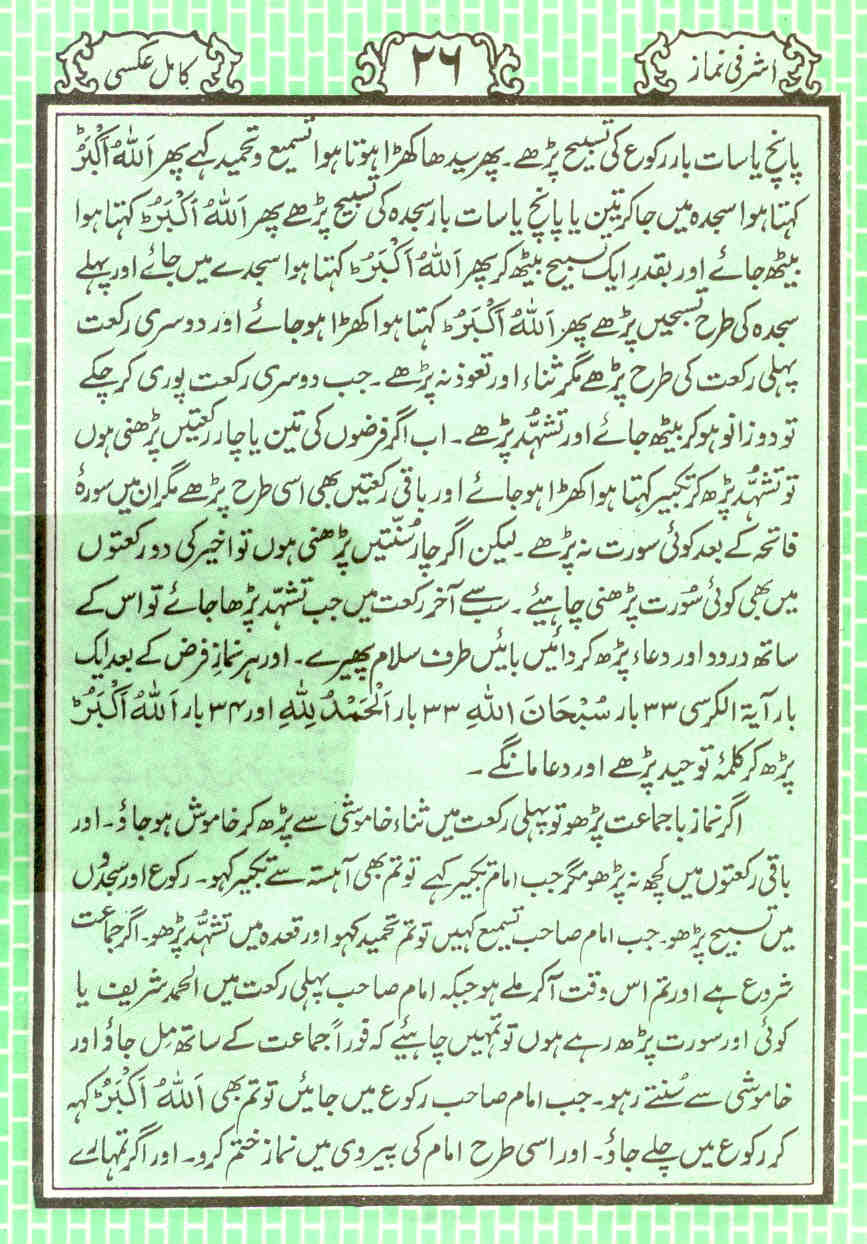 اشرفی نماز
۲۶
کامل عکسی
پانچ یا سات بار رکوع کی تسبیح پڑھے۔ پھر سیدھا کھڑا ہوتا ہوا تسمیع و تحمید کہے پھر اَللّٰهُ اَکْبَرُؕ
کہتا ہوا سجدہ میں جا کر تین یا پانچ یا سات بار سجدہ کی تسبیح پڑھے پھر اَللّٰهُ اَکْبَرُؕ کہتا ہوا
بیٹھ جائے اور بقدرِ ایک تسبیح بیٹھ کر پھر اَللّٰهُ اَکْبَرُؕ کہتا ہوا سجدے میں جائے اور پہلے
سجدہ کی طرح تسبحیں پڑھے پھر اَللّٰهُ اَکْبَرُؕ کہتا ہوا کھڑا ہو جائے اور دوسری رکعت
پہلی رکعت کی طرح پڑھے مگر ثناء اور تعوذ نہ پڑھے۔ جب دوسری رکعت پوری کر چکے
تو دو زانو ہو کر بیٹھ جائے اور تشہُّد پڑھے۔ اب اگر فرضوں کی تین یا چار رکعتیں پڑھنی ہوں
تو تشہُّد پڑھ کر تکبیر کہتا ہوا کھڑا ہو جائے اور باقی رکعتیں بھی اسی طرح پڑھے مگر ان میں سورۂ
فاتحہ کے بعد کوئی سورت نہ پڑھے۔ لیکن اگر چار سُنّتیں پڑھنی ہوں تو اخیر کی دو رکعتوں
میں بھی کوئی سُورت پڑھنی چاہیئے۔ سب سے آخر رکعت میں جب تشہّد پڑھا جائے تو اس کے
ساتھ درود اور دعاء پڑھ کر دائیں بائیں طرف سلام پھیرے۔ اور ہر نمازِ فرض کے بعد ایک
بار آیة الکرسی ۳۳ بار سُبْحَانَ اللّٰهِ ۳۳ بار اَلْحَمْدُ لِلّٰهِ اور ۳۴ بار اَللّٰهُ اَکْبَرُؕ
پڑھ کر کلمۂ توحید پڑھے اور دعا مانگے۔
اگر نماز با جماعت پڑھو تو پہلی رکعت میں ثناء خاموشی سے پڑھ کر خاموش ہو جاؤ۔ اور
باقی رکعتوں میں کچھ نہ پڑھو مگر جب امام تکبیر کہے تو تم بھی آہستہ سے تکبیر کہو۔ رکوع اور سجدوں
میں تسبیح پڑھو۔ جب امام صاحب تسمیع کہیں تو تم تحمید کہو اور قعدہ میں تشہُّد پڑھو۔ اگر جماعت
شروع ہے اور تم اس وقت آکر ملے ہو جبکہ امام صاحب پہلی رکعت میں الحمد شریف یا
کوئی اور سورت پڑھ رہے ہوں تو تمہیں چاہیئے کہ فوراً جماعت کے ساتھ مِل جاؤ اور
خاموشی سے سُنتے رہو۔ جب امام صاحب رکوع میں جائیں تو تم بھی اَللّٰهُ اَکْبَرُؕ کہہ
کر رکوع میں چلے جاؤ۔ اور اسی طرح امام کی پیروی میں نماز ختم کرو۔ اور اگر تمہارے